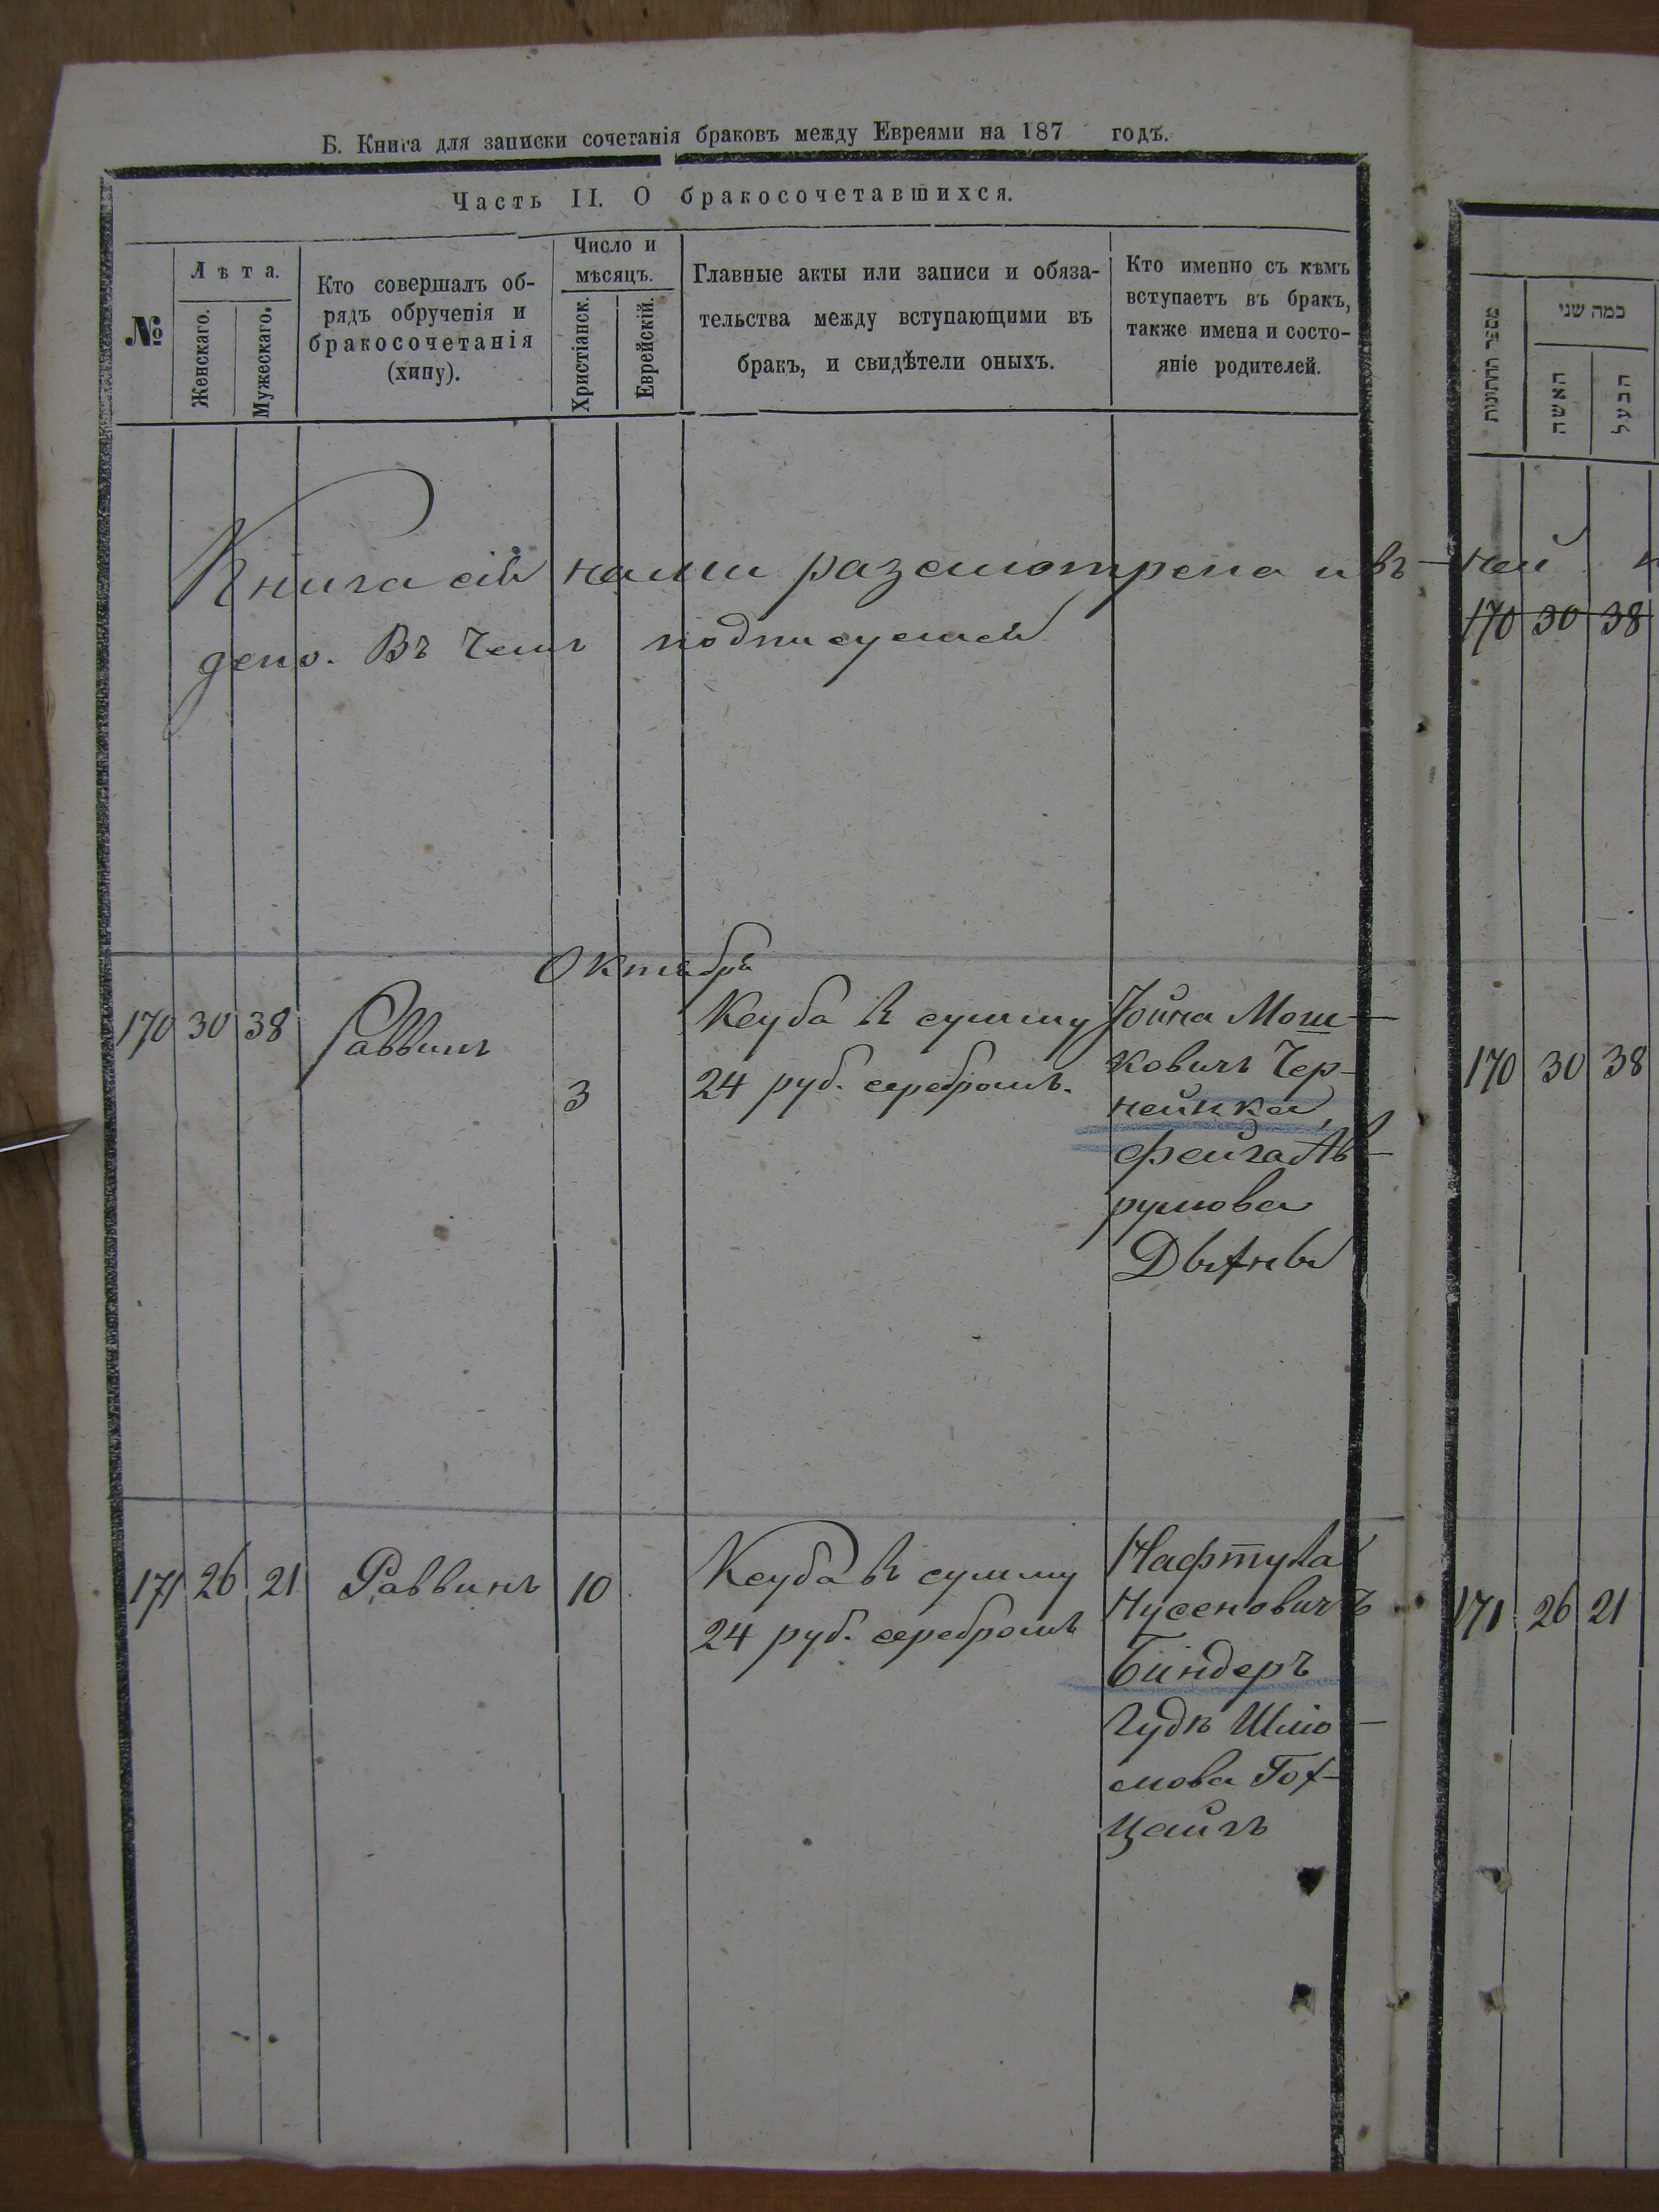 Б. Книга для записки сочетанія браковъ между Евреями на 187 годъ.
Часть II. О бракосочетавшихся.
№
Лѣта.
Женскаго.
Мужескаго.
Кто совершалъ об-
рядъ обрученія и
бракосочетанія
(хипу).
Число и
мѣсяцъ.
Христіанск.
Еврейскій.
Главные акты или записи и обяза-
тельства между вступающими въ
бракъ, и свидѣтели оныхъ.
Кто именно съ кѣмъ
вступаетъ въ бракъ,
также имена и состо-
яніе родителей.
מספר החתונות
כמה שני
האשה
הבעל
Книга сія нами разсмотрена и въ ней
170 30 38
дено. Въ чемъ подписуемся
Октября
170 30 38 Раввинъ 3
Кеуба въ сумму
24 руб. серебромъ.
Іойна Мош-
ковичъ Чер-
нейка
Фейга Ав-
румова
170 30 38
171 26 21 Раввинъ 10
Кеуба въ сумму
24 руб. серебромъ
Нафтула
Нусеновичъ
Биндеръ
Гудя Шліо-
мова Гох-
цайгъ
171 26 21